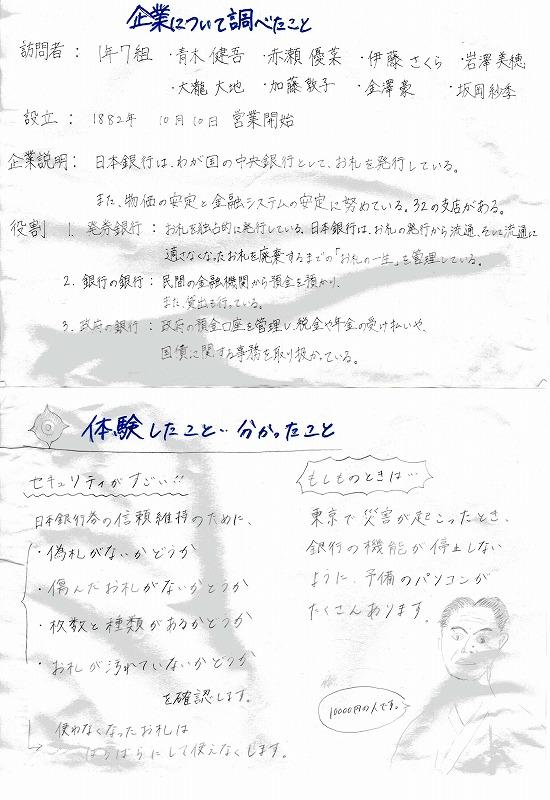 企業について調べたこと
訪問者: 1年7組 ・青木健吾 ・赤瀬優菜 ・伊藤さくら ・岩澤美穂
・大瀧大地 ・加藤敦子 ・金澤豪 ・坂岡紗季
設立: 1882年 10月10日 営業開始
企業説明: 日本銀行は、わが国の中央銀行として、お札を発行している。
また、物価の安定と金融システムの安定に努めている。32の支店がある。
役割 1. 発券銀行: お札を独占的に発行している。日本銀行は、お札の発行から流通、そして流通に
適さなくなったお札を廃棄するまでの「お札の一生」を管理している。
2. 銀行の銀行: 民間の金融機関から預金を預かり、
また、貸出も行っている。
3. 政府の銀行: 政府の預金口座を管理し、税金や年金の受け払いや、
国債に関する事務を取り扱かっている。
体験したこと…分かったこと
セキュリティがすごい!!
日本銀行券の信頼維持のために、
・偽札がないかどうか
・傷んだお札がないかどうか
・枚数と種類があるかどうか
・お札が汚れていないかどうか
を確認します。
使わなくなったお札は
ばらばらにして使えなくします。
もしものときは…
東京で災害が起こったとき、
銀行の機能が停止しない
ように、予備のパソコンが
たくさんあります。
10000円の人です。